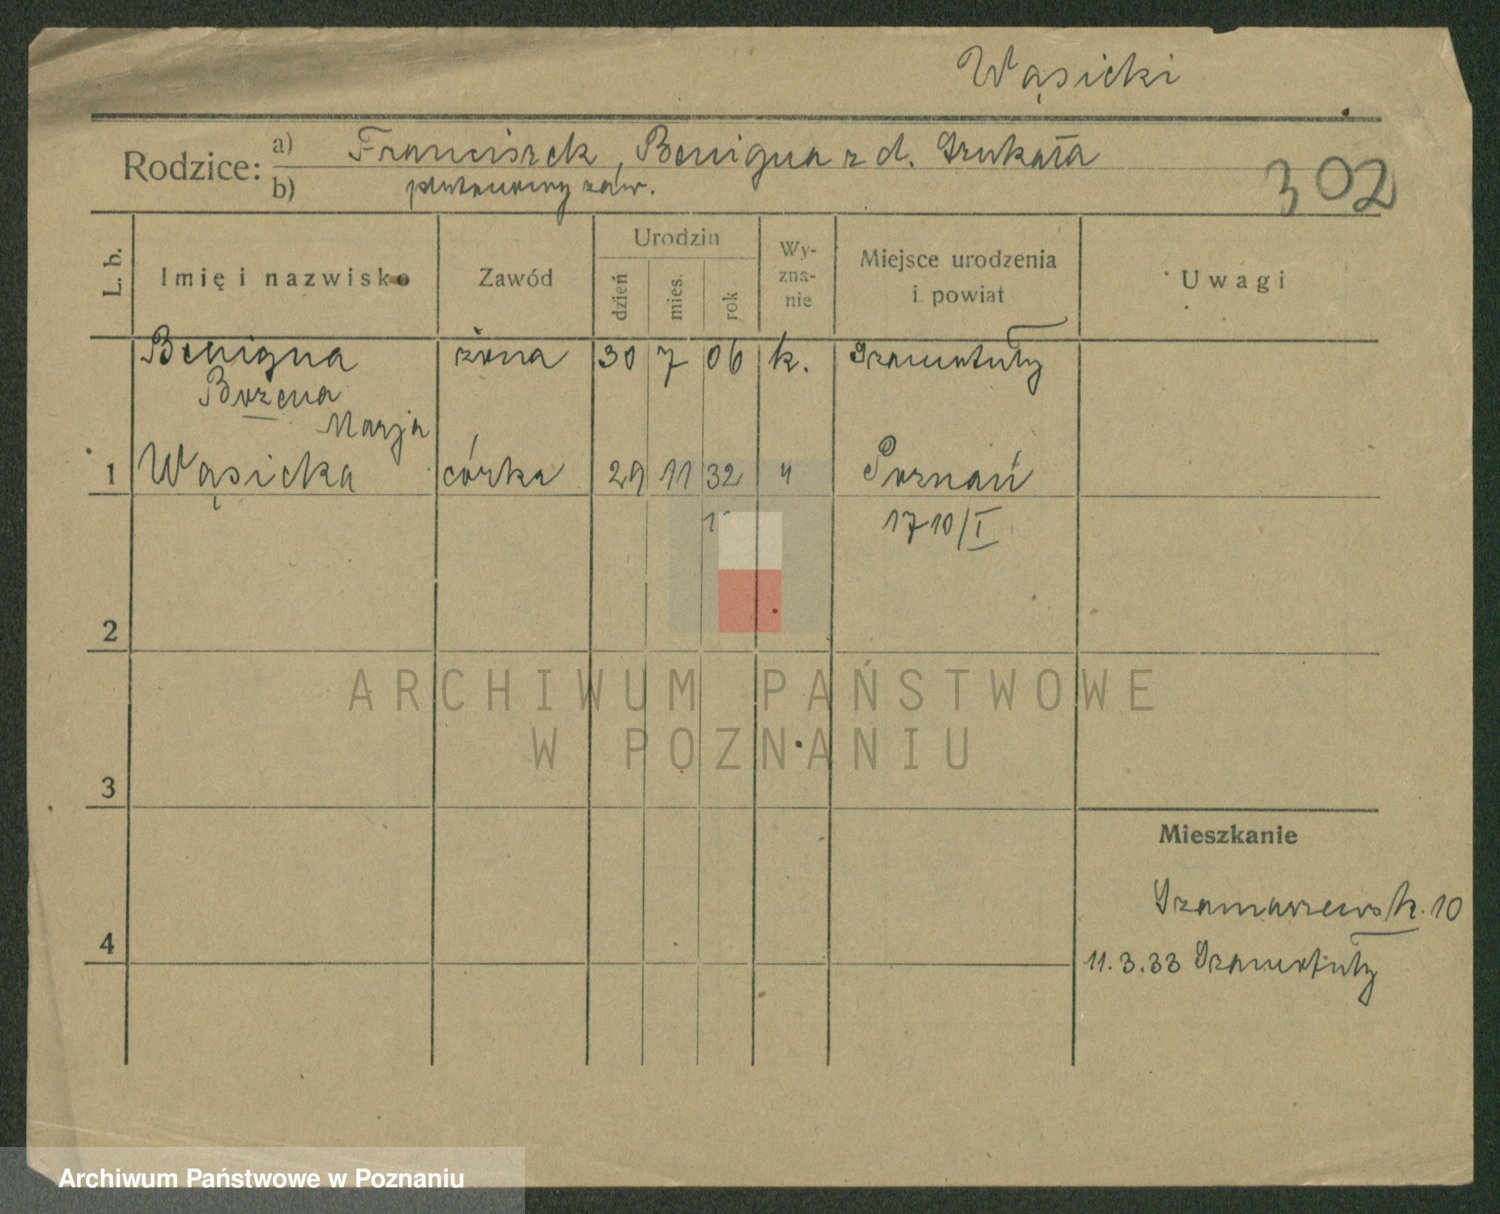 Wąsicki
Rodzice: a) Franciszek, Benigna z d. Szukała
b) plutonowy zaw.
302
L. b. Imię i nazwisko Zawód Urodzin dzień mies. rok Wy-zna-nie Miejsce urodzenia i powiat Uwagi
Benigna żona 30 7 06 k. Szamotuły
Bożena
Marja
1 Wąsicka córka 29 11 32 " Poznań
1710/I
2
3
Mieszkanie
Szamarzewsk. 10
4
11.3.33 Szamotuły
ARCHIWUM PAŃSTWOWE
W POZNANIU
Archiwum Państwowe w Poznaniu